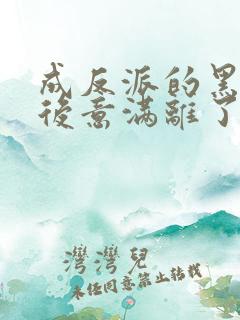 成反派的黑
後意滿離了
灣灣兒
未經同意禁止轉載